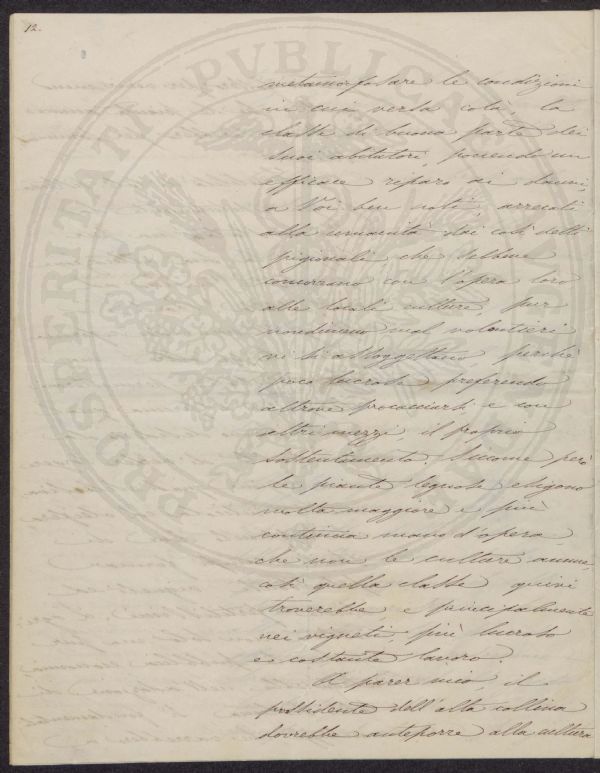 12.
PROSPERITATI PUBLICAE
metamorfosare le condizioni
in cui versa colà, la
classe di buona parte dei
suoi abitatori, ponendo un
efficace riparo ai danni,
a Voi ben noti, arrecati
alla umanità dai così detti
pigionali che sebbene
concorrano con l'opera loro
alle locali culture, pur
nondimeno mal volontieri
vi si assoggettano perchè
poco lucrosa preferendo
altrove procacciarsi e con
altri mezzi, il proprio
sostentamento. Siccome però
le piante legnose esigono
molta maggiore e più
continua mano d'opera
che non le culture annue,
così quella classe quivi
troverebbe e principalmente
nei vigneti, più lucroso
e costante lavoro.
A parer mio, il
possidente dell'alta collina
dovrebbe anteporre alla cultura